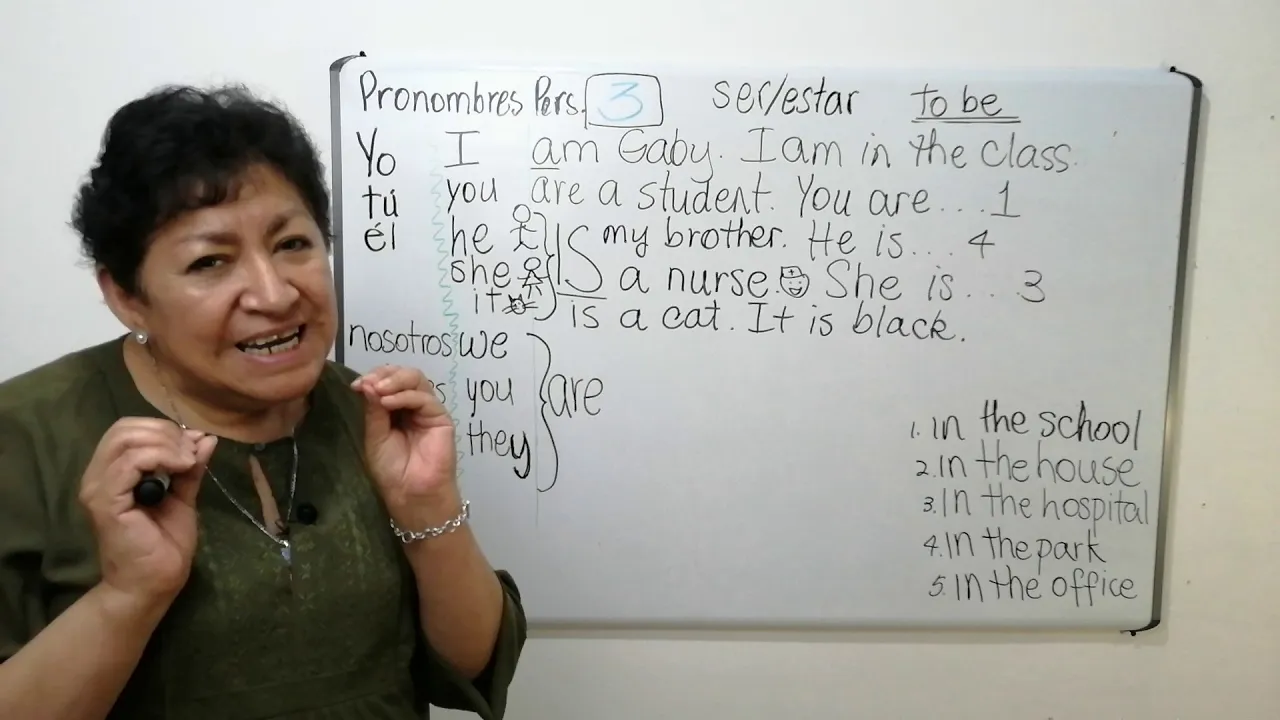 Pronombres Pers. 3 ser/estar to be
Yo I am Gaby. I am in the class.
tú you are a student. You are ... 1
él he is my brother. He is ... 4
she a nurse. She is ... 3
it is a cat. It is black.
nosotros we
you are
they
1. in the school
2. in the house
3. in the hospital
4. in the park
5. in the office